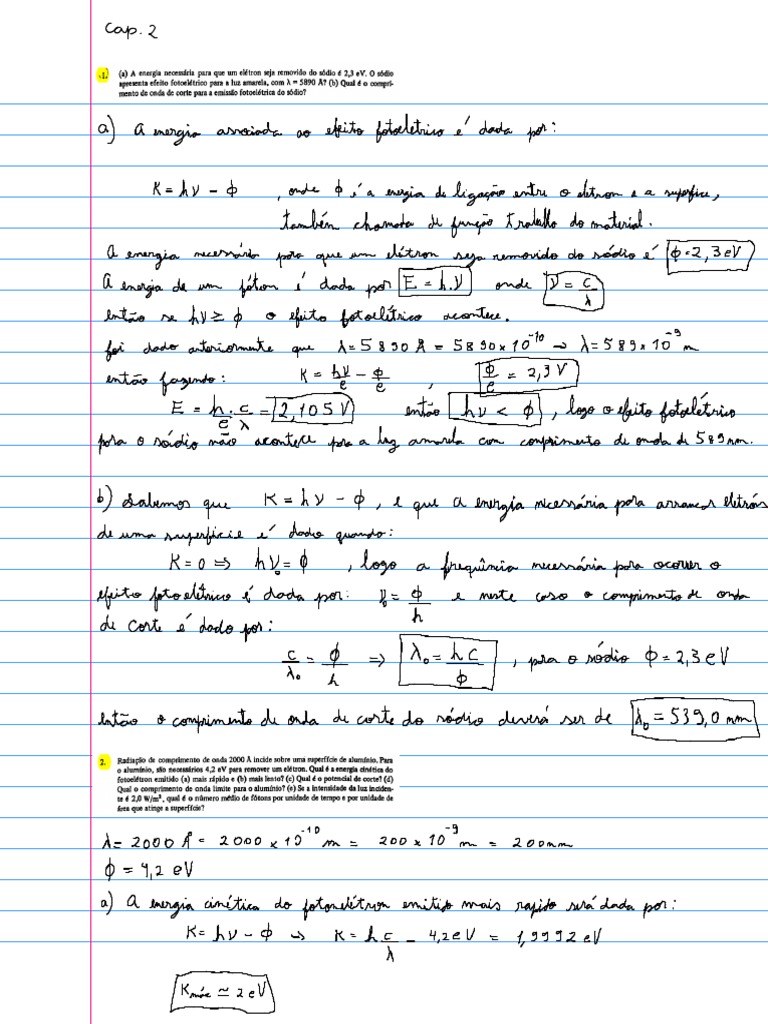 Cap. 2
1. (a) A energia necessária para que um elétron seja removido do sódio é 2,3 eV. O sódio
apresenta efeito fotoelétrico para a luz amarela, com λ = 5890 Å? (b) Qual é o compri-
mento de onda de corte para a emissão fotoelétrica do sódio?
a) A energia associada ao efeito fotoeletrico é dada por:
K = hν - ϕ , onde ϕ é a energia de ligação entre o eletron e a superfíce,
também chamada de função trabalho do material.
A energia necessário para que um elétron seja removido do sódio é ϕ = 2,3 eV
A energia de um fóton é dada por E = h.ν onde ν = c/λ
então se hν ≥ ϕ o efeito fotoelétrico acontece.
foi dado anteriormente que λ = 5890 Å = 5890 x 10^-10 → λ = 589 x 10^-9 m
então fazendo: K = hν/e - ϕ/e , ϕ/e = 2,3 V
E = h/e . c/λ = 2,105 V então hν < ϕ , logo o efeito fotoelétrico
para o sódio não acontece para a luz amarela com comprimento de onda de 589 nm.
b) Sabemos que K = hν - ϕ , e que a energia necessária para arrancar eletróns
de uma superfície é dado quando:
K = 0 ⇒ hν₀ = ϕ , logo a frequência necessária para ocorrer o
efeito fotoelétrico é dada por: ν₀ = ϕ/h e neste caso o comprimento de onda
de corte é dado por:
c/λ₀ = ϕ/h ⇒ λ₀ = hc/ϕ , para o sódio ϕ = 2,3 eV
então o comprimento de onda de corte do sódio deverá ser de λ₀ = 539,0 nm
2. Radiação de comprimento de onda 2000 Å incide sobre uma superfície de alumínio. Para
o alumínio, são necessários 4,2 eV para remover um elétron. Qual é a energia cinética do
fotoelétron emitido (a) mais rápido e (b) mais lento? (c) Qual é o potencial de corte? (d)
Qual o comprimento de onda limite para o alumínio? (e) Se a intensidade da luz inciden-
te é 2,0 W/m², qual é o número médio de fótons por unidade de tempo e por unidade de
área que atinge a superfície?
λ = 2000 Å = 2000 x 10^-10 m = 200 x 10^-9 m = 200nm
ϕ = 4,2 eV
a) A energia cinética do fotoelétron emitido mais rapido será dada por:
K = hν - ϕ → K = h c/λ - 4,2 eV = 1,9992 eV
Kmáx ≃ 2 eV